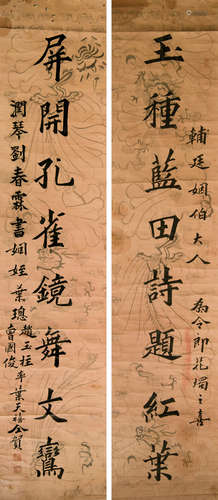 輔廷姻伯大人
為令郎花燭之喜
玉種藍田詩題紅葉
屏開孔雀鏡舞文鸞
潤琴劉春霖書
姻姪葉璁趙玉柱曾國俊率葉天禧仝賀